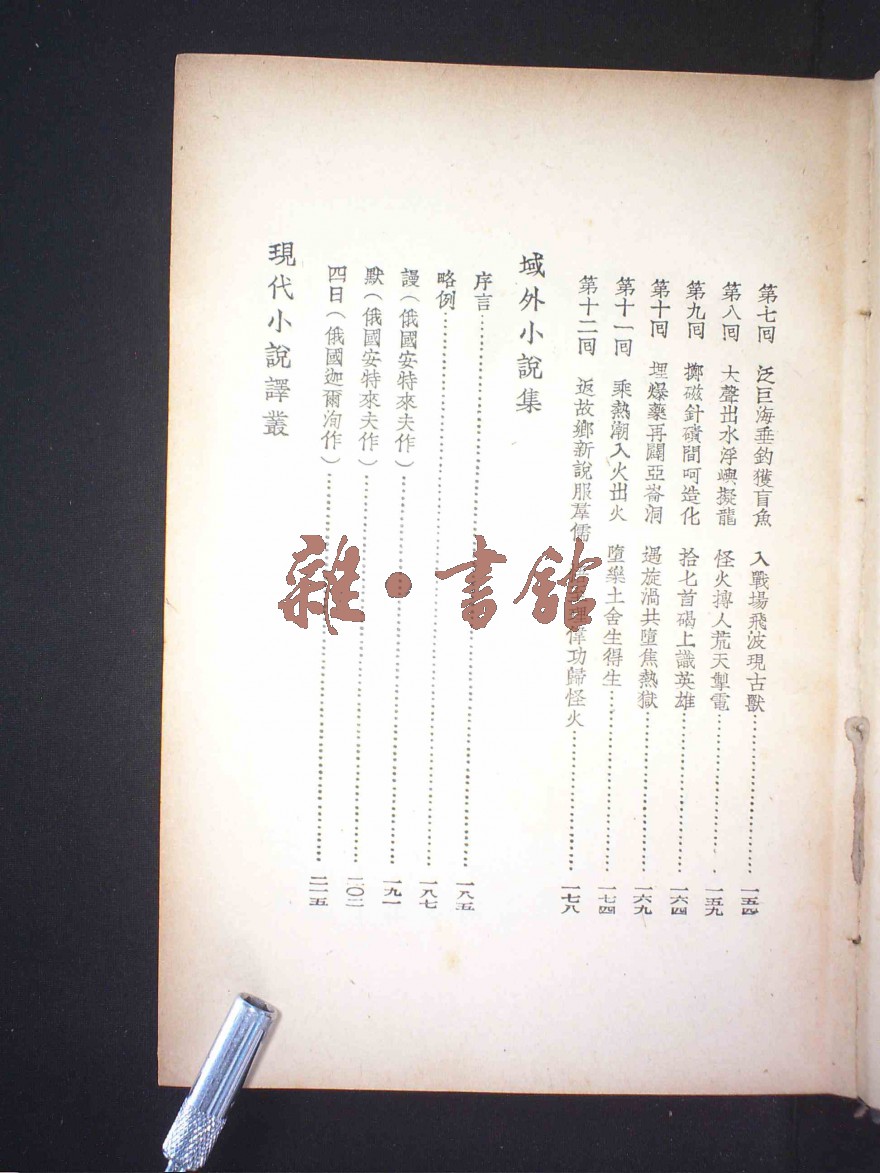 第七回 泛巨海垂鈎獲盲魚 入戰場飛波現古獸……………一五四
第八回 大聲出水浮嶼擬龍 怪火搏人荒天掣電……………一五九
第九回 擲磁針磧間呵造化 拾匕首碣上識英雄……………一六四
第十回 埋爆藥再闢亞崙洞 遇旋渦共墮焦熱獄……………一六九
第十一回 乘熱潮入火出火 墮樂土舍生得生……………一七四
第十二回 返故鄉新說服羣儒 理偉功歸怪火……………一七八
域外小說集
序言……………一八五
略例……………一八七
謾（俄國安特來夫作）……………一九一
默（俄國安特來夫作）……………二〇二
四日（俄國迦爾洵作）……………二一五
現代小說譯叢
雜·書館